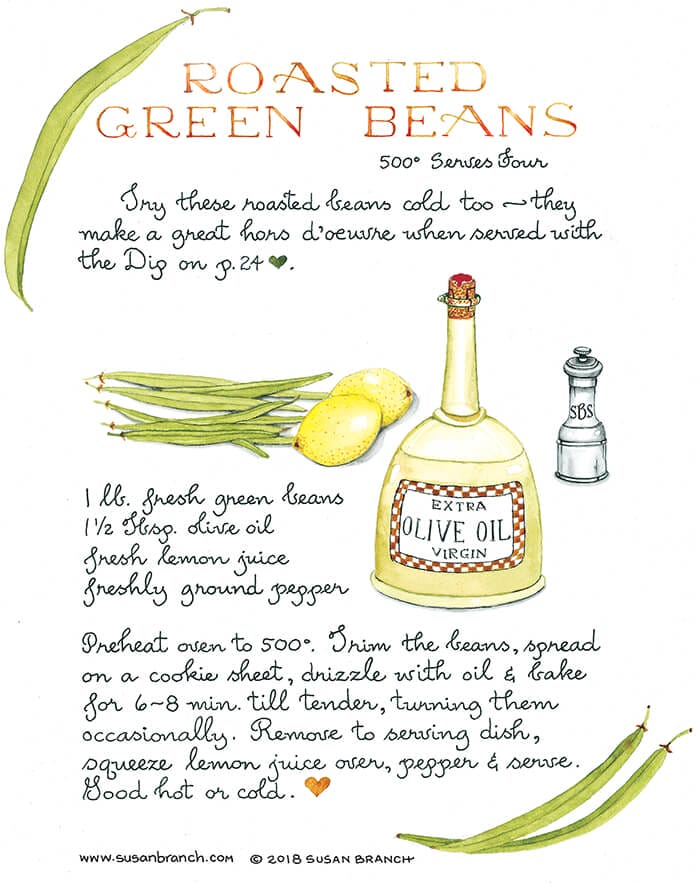 ROASTED
GREEN BEANS
500° Serves Four
Try these roasted beans cold too ~ they
make a great hors d'oeuvre when served with
the Dip on p. 24 ♥.
SBS
EXTRA
OLIVE OIL
VIRGIN
1 lb. fresh green beans
1 1/2 Tbsp. olive oil
fresh lemon juice
freshly ground pepper
Preheat oven to 500°. Trim the beans, spread
on a cookie sheet, drizzle with oil & bake
for 6~8 min. till tender, turning them
occasionally. Remove to serving dish,
squeeze lemon juice over, pepper & serve.
Good hot or cold. ♥
www.susanbranch.com © 2018 SUSAN BRANCH